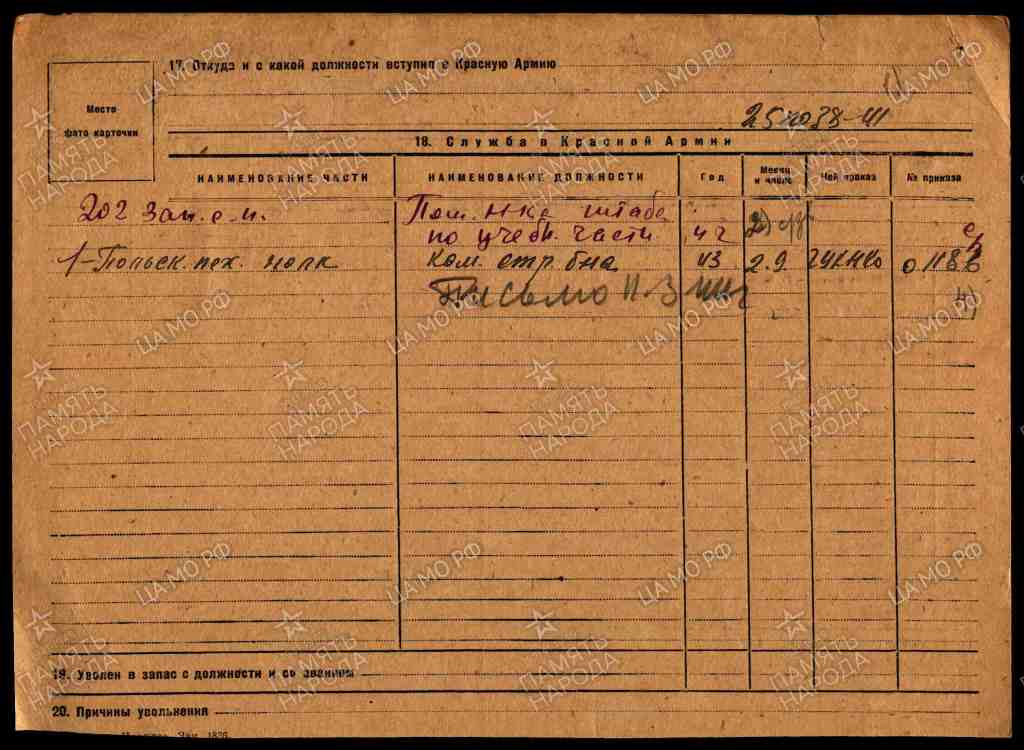 17. Откуда и с какой должности вступил в Красную Армию
Место
фото карточки
18. Служба в Красной Армии
НАИМЕНОВАНИЕ ЧАСТИ
НАИМЕНОВАНИЕ ДОЛЖНОСТИ
Год
Месяц и число
Чей приказ
№ приказа
202 Зап. с. п.
Пом. н-ка штаба
по учебн. части 42
1-Польск. пех. полк Ком. стр. б-на 43 2.9. ГУКНКО 0118
Письмо
19. Уволен в запас с должности и со званием
20. Причины увольнения
ПАМЯТЬ НАРОДА
ЦАМО.РФ